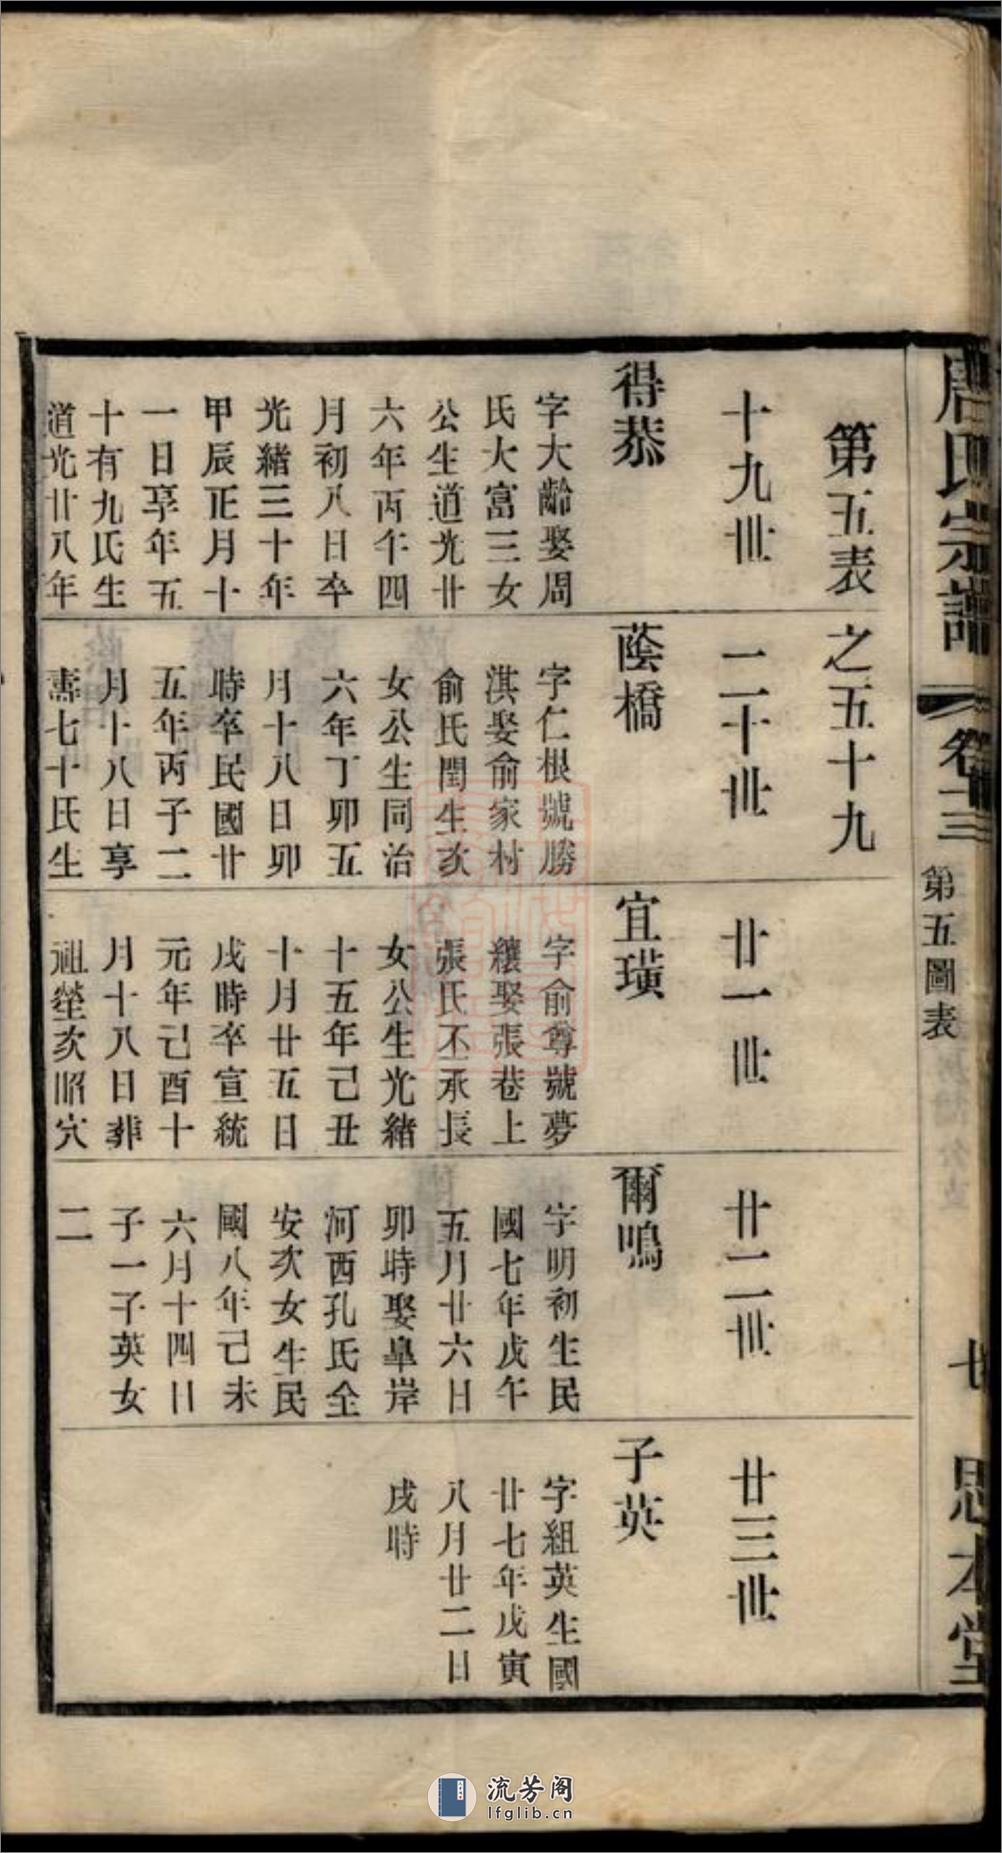 唐氏宗譜
卷十三
第五圖表
七
思本堂
第五表
之五十九
十九世
得恭
字大齡娶周
氏大富三女
公生道光廿
六年丙午四
月初八日卒
光緒三十年
甲辰正月十
一日享年五
十有九氏生
道光廿八年
二十世
蔭橋
字仁根號勝
淇娶俞家村
俞氏閏生次
女公生同治
六年丁卯五
月十八日卯
時卒民國廿
五年丙子二
月十八日享
壽七十氏生
廿一世
宜璜
字俞尊號夢
纕娶張巷上
張氏丕承長
女公生光緒
十五年己丑
十月廿五日
戌時卒宣統
元年己酉十
月十八日葬
祖塋次昭穴
廿二世
爾鳴
字明初生民
國七年戊午
五月廿六日
卯時娶皐岸
河西孔氏全
安次女生民
國八年己未
六月十四日
子一子英女
二
廿三世
子英
字組英生國
廿七年戊寅
八月廿二日
戌時
流芳阁
lfglib.cn